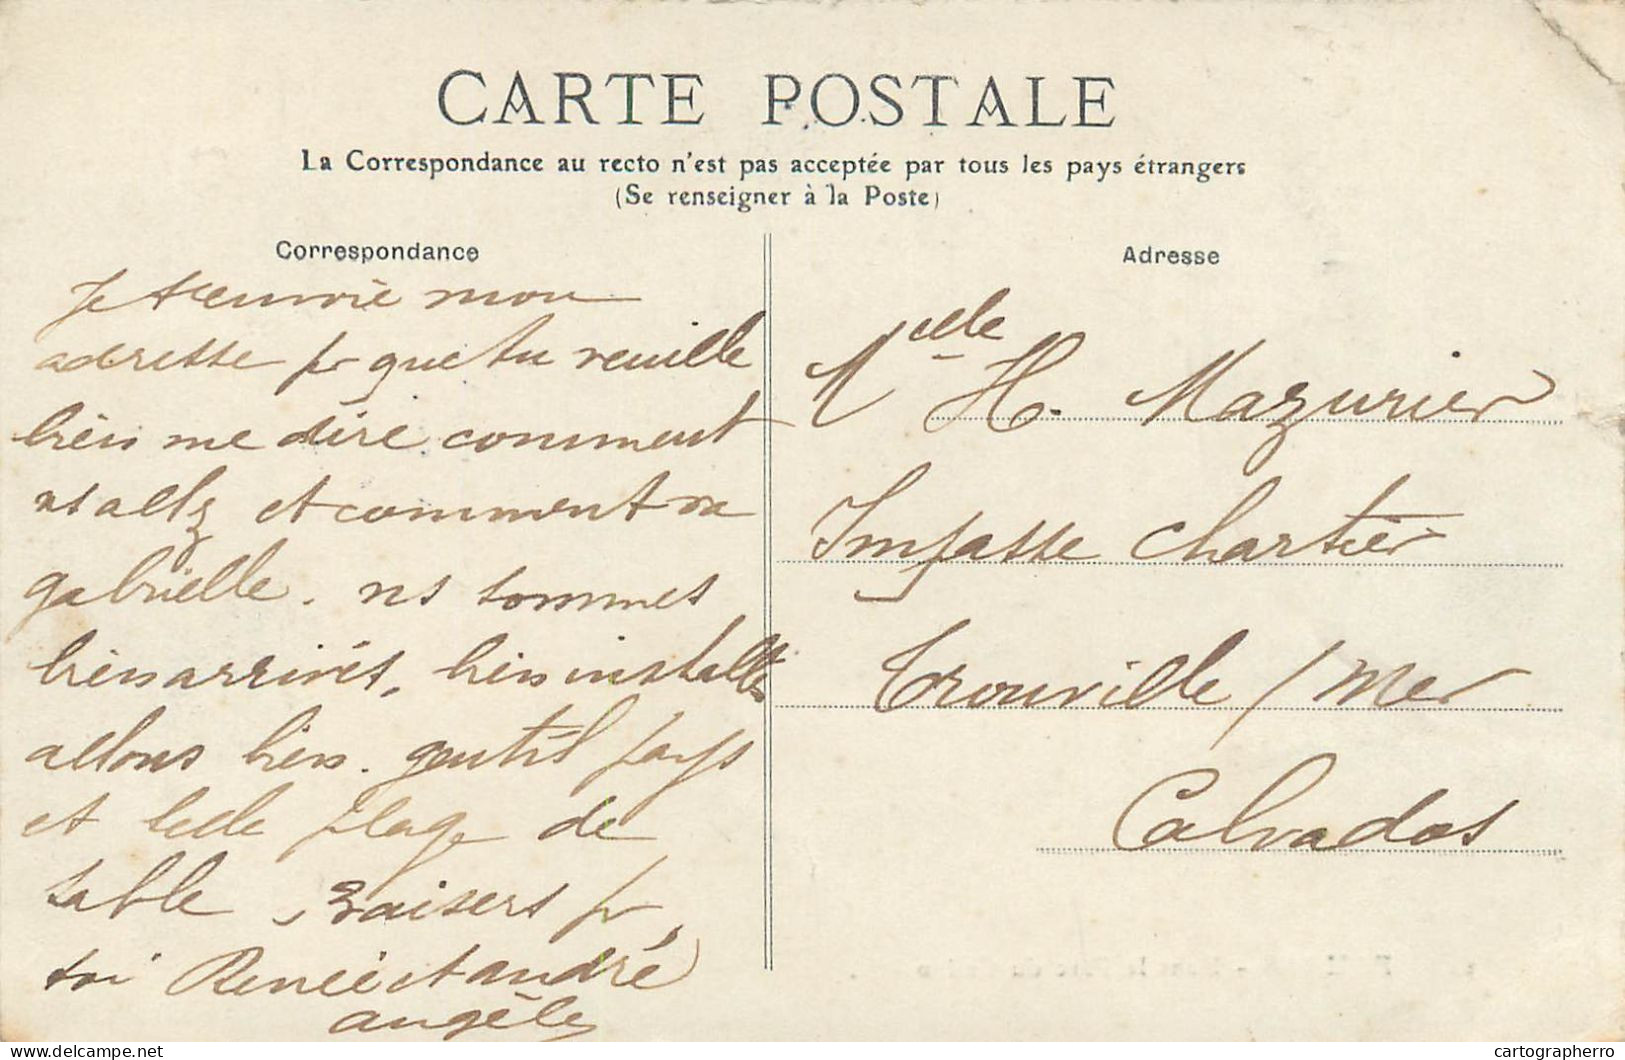 CARTE POSTALE
La Correspondance au recto n'est pas acceptée par tous les pays étrangers
(Se renseigner à la Poste)
Correspondance
Je t'envoie mon
adresse pr que tu veuille
bien me dire comment
vs allez et comment va
gabrielle. ns sommes
bien arrivés, bien installés
allons bien. gentil pays
et belle plage de
sable, Baisers pr
toi Renée et andré
angèle
Adresse
Melle H. Mazurier
Impasse Chartier
Trouville / Mer
Calvados
delcampe.net
cartographerro